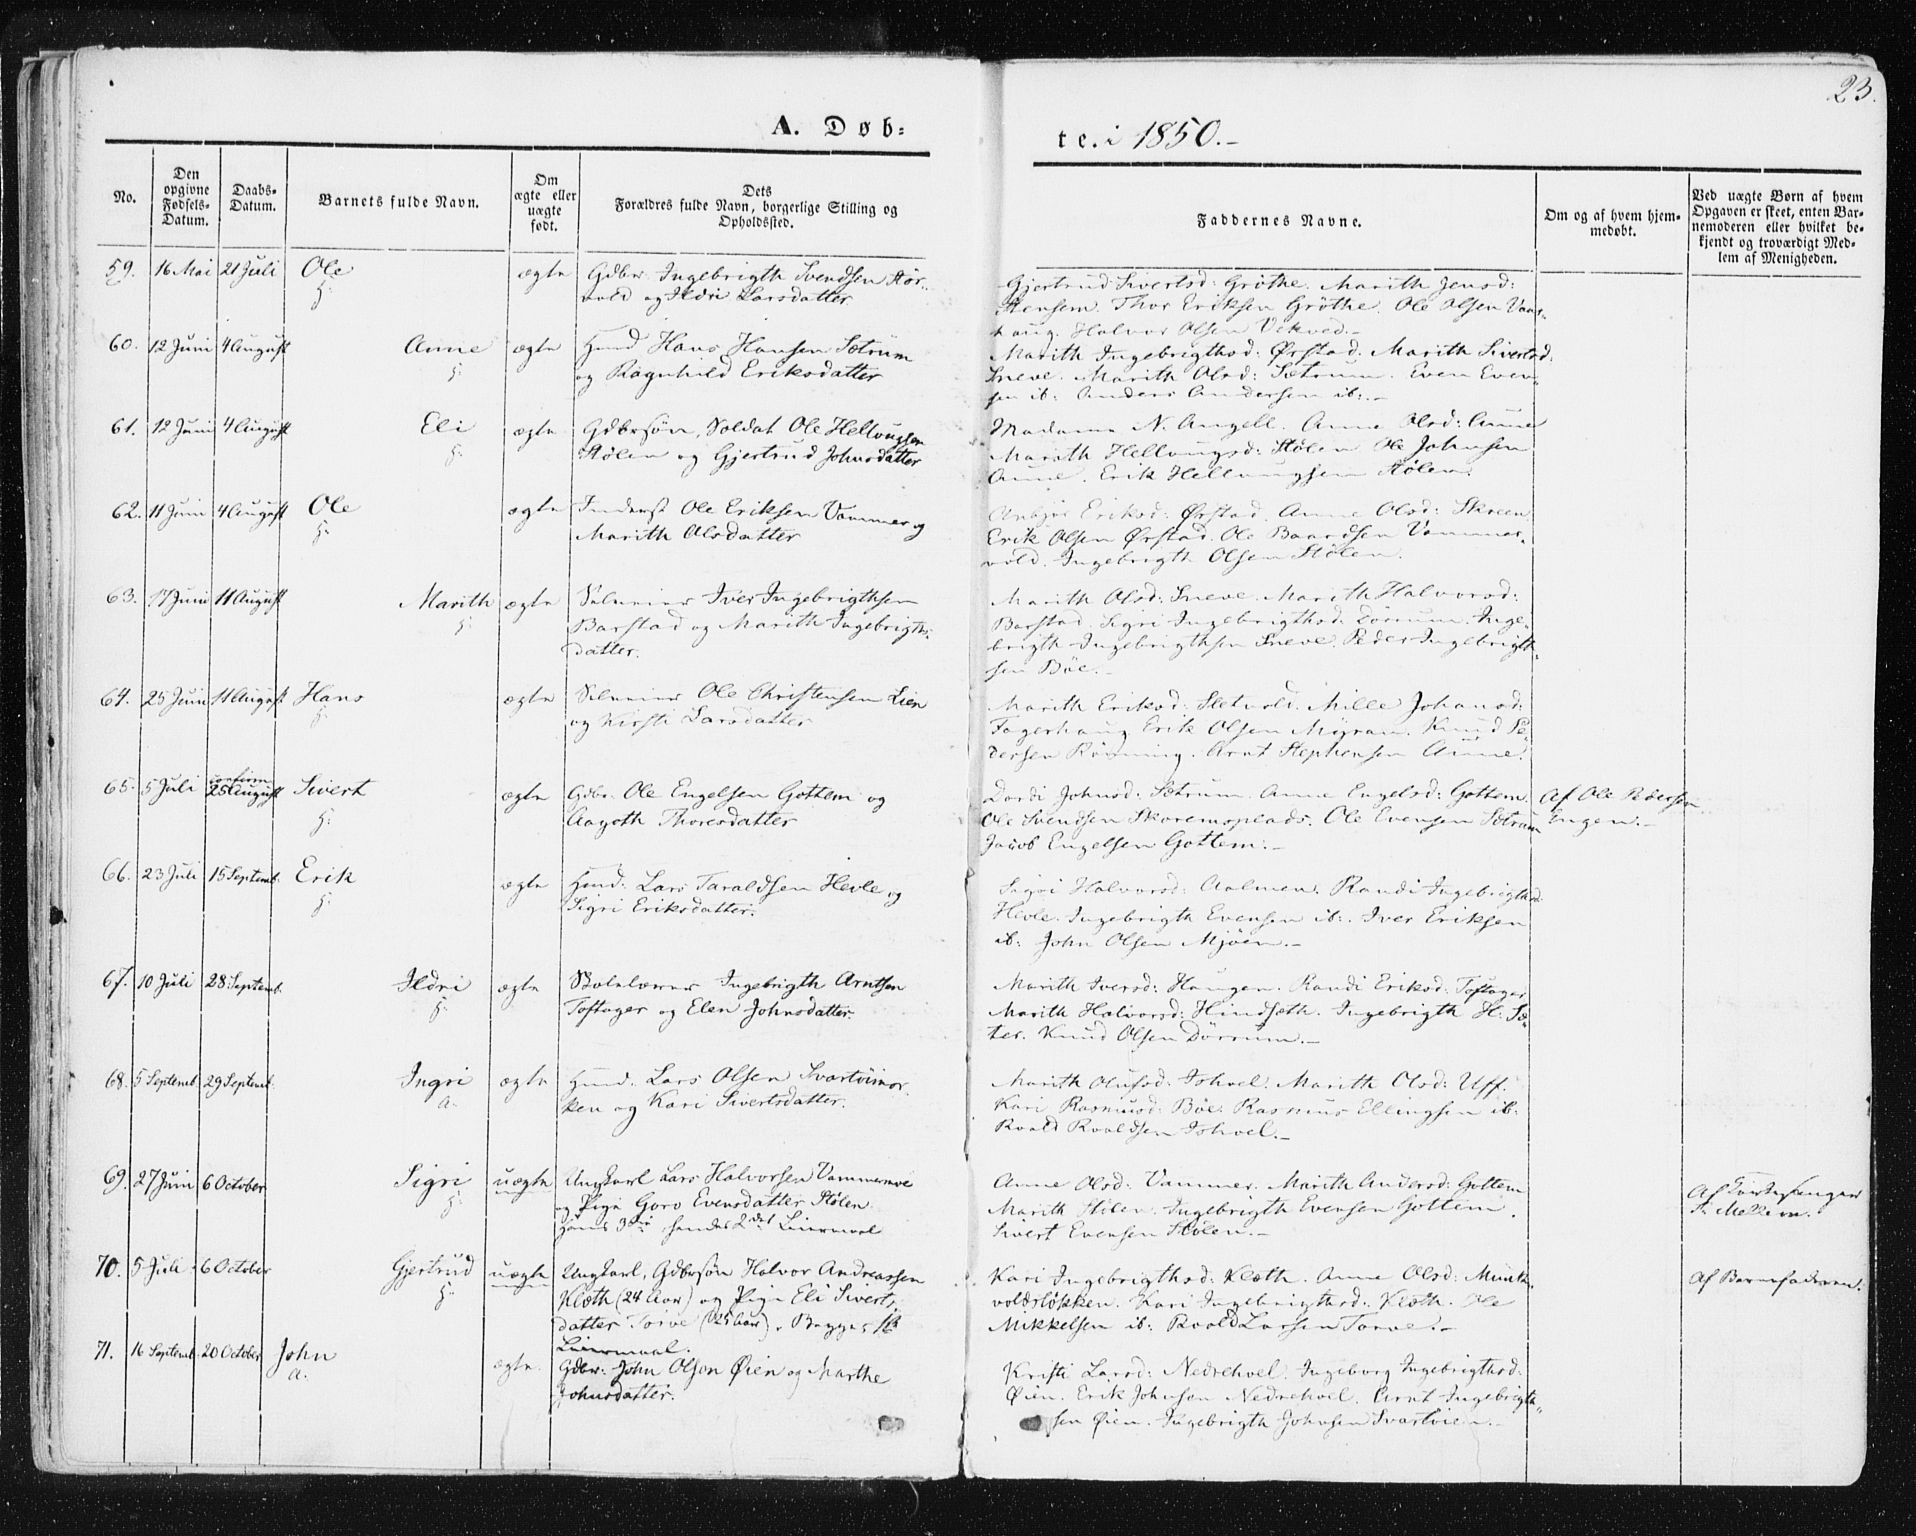 23.
A. Døb-
te. i 1850.-
No.
Den opgivne Fødsels-Datum.
Daabs-Datum.
Barnets fulde Navn.
Om ægte eller uægte født.
Dets Forældres fulde Navn, borgerlige Stilling og Opholdssted.
Faddernes Navne.
Om og af hvem hjem-medøbt.
Ved uægte Børn af hvem Opgaven er skeet, enten Bar-nemoderen eller hvilket be-kjendt og troværdigt Med-lem af Menigheden.
59. 16 Mai 21 Juli Ole ægte Gdbr. Ingebrigth Svendsen Stør-
h:
vold og Ildri Larsdatter
Gjertrud Sivertsd: Grøthe. Marith Jensd:
Stensem. Thor Eriksen Grøthe. Ole Olsen Vaas-
haug. Halvor Olsen Vikved.-
60. 12 Juni 4 August Anne ægte Huusd Hans Hansen Sætrum
h:
og Ragnhild Eriksdatter
Marith Ingebrigthsd: Ørstad. Marith Sivertsd:
Sneve. Marith Olsd: Sætrum. Even Even-
sen ib: Anders Andersen ib:.-
61. 12 Juni 4 August Eli ægte Gdbrsøn, Soldat Ole Hellvugsen
h:
Stølen og Gjertrud Johnsdatter
Madame N. Angell. Anne Olsd: Aune
Marith Hellvugsd: Stølen Ole Johnsen
Aune. Erik Hellvugsen Stølen.
62. 11 Juni 4 August Ole ægte Inderst Ole Eriksen Vammer og
h:
Marith Olsdatter
Anbjør Eriksd: Ørstad. Anne Olsd: Skreen
Erik Olsen Ørstad. Ole Baardsen Vammer-
vold. Ingebrigth Olsen Stølen.
63. 17 Juni 11 August Marith ægte Selveier Iver Ingebrigthsen
h:
Barstad og Marith Ingebrigths-
datter.
Marith Olsd: Sneve. Marith Halvorsd:
Barstad. Sigri Ingebrigthsd: Dørrum. Inge-
brigth Ingebrigthsen Sneve. Peder Ingebrigth-
sen Böe.-
64. 25 Juni 11 August Hans ægte Selveier Ole Christensen Lien
h:
og Kirsti Larsdatter
Marith Eriksd: Sletvold. Mille Johansd:
Fagerhaug Erik Olsen Myran. Knud Pe-
dersen Rönning. Arnt Stephensen Aune.
65. 5 Juli confirm 25 August Sivert ægte Gdbr. Ole Engelsen Gottem og
h:
Aagoth Thoresdatter
Dordi Johnsd: Sætrum. Anne Engelsd: Gottem.
Ole Svendsen Skoremsplads. Ole Evensen Sætrum
Jacob Engelsen Gottem.-
Af Ole Pedersen
Engen.-
66. 23 Juli 15 Septemb. Erik ægte Huusd: Lars Taraldsen Hevle og
h:
Sigri Eriksdatter.
Sigri Halvorsd: Aalmen. Randi Ingebrigthsd:
Hevle. Ingebrigth Evensen ib:. Iver Eriksen
ib: John Olsen Mjöen.-
67. 10 Juli 28 Septemb. Ildri ægte Skolelærer Ingebrigth Arntsen
h:
Toftager og Elen Johnsdatter.
Marith Iversd: Haugen. Randi Eriksd: Toftager
Marith Halvorsd: Hindseth. Ingebrigth H: Sæ-
ter. Knud Olsen Dörrum.-
68. 5 Septemb 29 Septemb. Ingri ægte Huusd. Lars Olsen Svartöimor-
a.
ken og Kari Sivertsdatter.
Marith Olufsd: Ishoel. Marith Olsd: Uff.
Kari Rasmusd: Böe. Rasmus Ellingsen ib:
Roald Roaldsen Ishoel.-
69. 27 Juni 6 October Sigri uægte Ungkarl Lars Halvorsen Vammervoe
h:
og Pige Goro Evensdatter Stølen
Hans 3die hendes 2det Leiermaal
Anne Olsd: Vammer. Marith Andersd: Gottem
Marith Stølen. Ingebrigth Evensen Gottem.
Sivert Evensen Stølen.-
Af Kirkesanger
S. Mellem.
70. 5 Juli 6 October Gjertrud uægte Ungkarl, Gdbrsøn Halvor Andreassen
h:
Klæth (24 Aar) og Pige Eli Siverts-
datter Torve (25 Aar). Begges 1ste
Leiermaal.
Kari Ingebrigthsd: Klæth. Anne Olsd: Munk-
voldsløkken. Kari Ingebrigthsd: Klæth. Ole
Mikkelsen ib: Roald Larsen Torve.-
Af Barnefaderen.
71. 16 Septemb. 20 October John ægte. Gdbr. John Olsen Øien og Marthe
a.
Johnsdatter.
Kristi Larsd: Nedrehoel. Ingeborg Ingebrigthsd:
Øien. Erik Johnsen Nedrehoel. Arnt Ingebrigth-
sen Øien. Ingebrigth Johnsen Svartöien.-